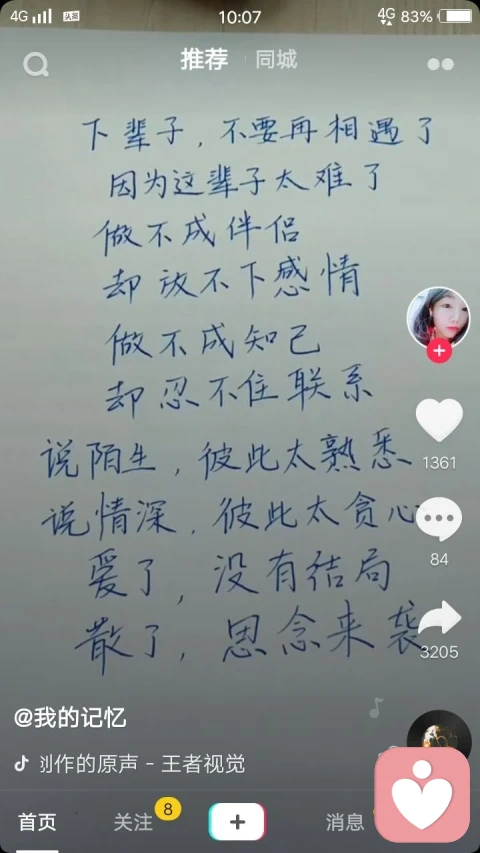 4G 10:07 4G 83%
推荐 同城
下辈子，不要再相遇了
因为这辈子太难了
做不成伴侣
却放不下感情
做不成知己
却忍不住联系
说陌生，彼此太熟悉
说情深，彼此太贪心
爱了，没有结局
散了，思念来袭
1361
84
3205
@我的记忆
创作的原声 - 王者视觉
首页 关注 8 消息